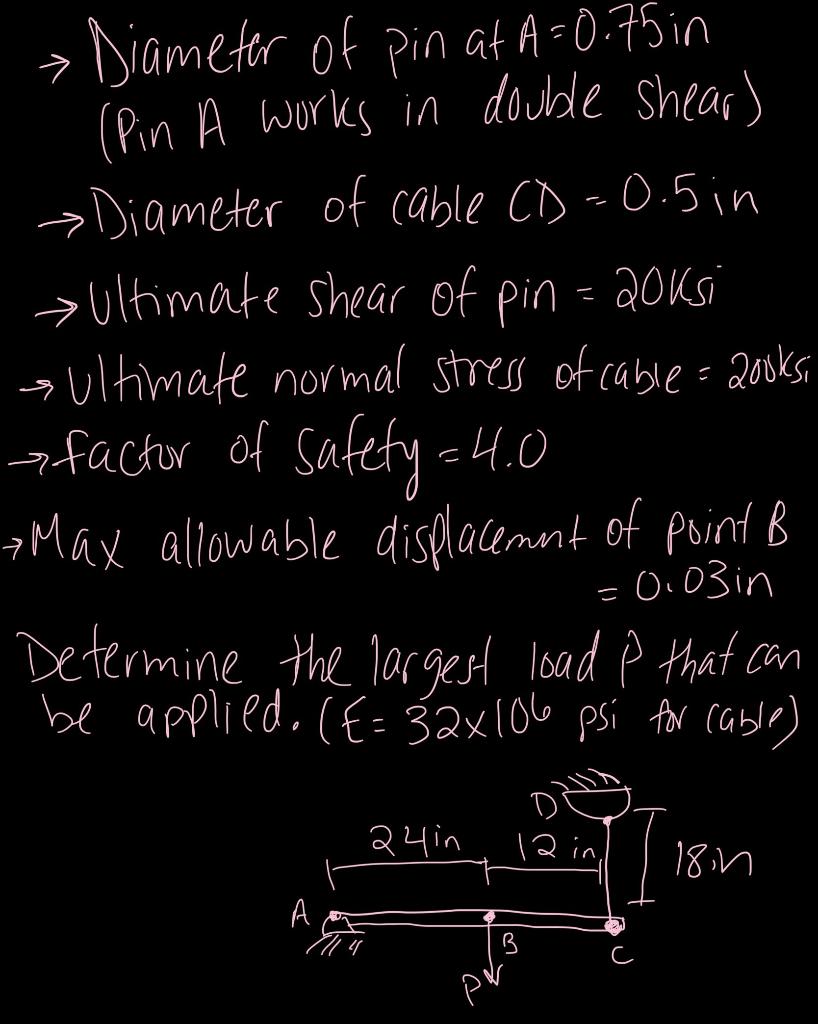 → Diameter of pin at A=0.75in
(Pin A works in double shear)
→ Diameter of cable CD = 0.5in
→ Ultimate shear of pin = 20Ksi
→ Ultimate normal stress of cable = 200ksi
→ factor of safety = 4.0
→ Max allowable displacement of point B
= 0.03in
Determine the largest load P that can
be applied. (E= 32x10⁶ psi for cable)
D
24in 12 in 18in
A
B
C
P